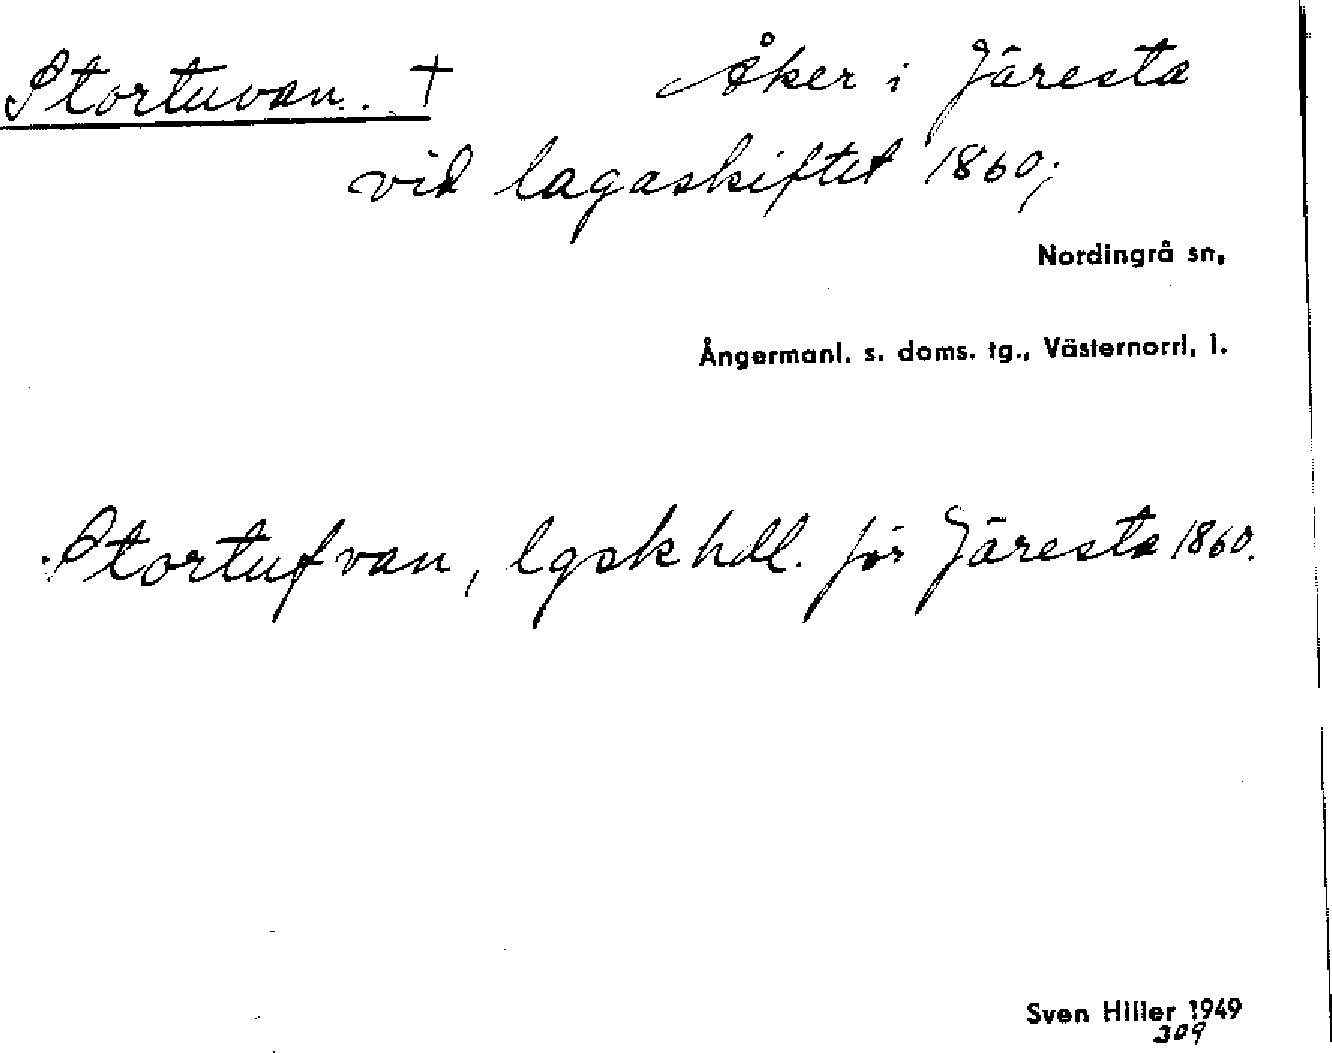 Stortuvan. † Åker i Järesta
vid lagaskiftet 1860;
Nordingrå sn,
Ångermanl. s. doms. tg., Västernorrl. l.
Stortufvan, lgsk hdl. för Järesta 1860.
Sven Hiller 1949
309